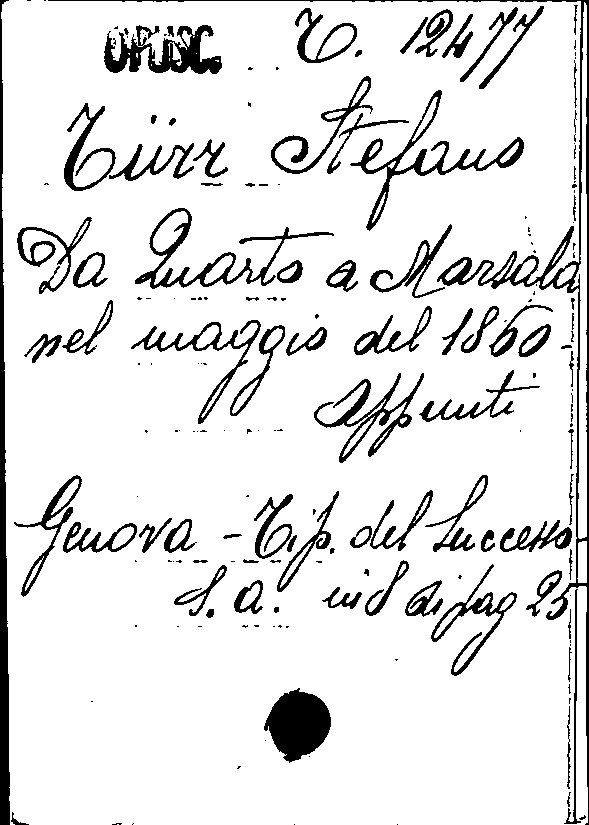 OPUSC. T. 12477
Türr Stefano
Da Quarto a Marsala
nel maggio del 1860
Appunti
Genova - Tip. del Successo
s. a. in 8 di pag 25